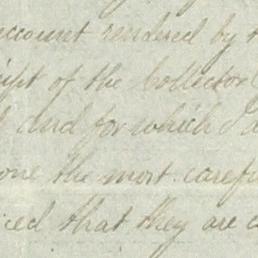 account rendered by
ipt of the Collector
and for which I
one the most caref
ced that they are